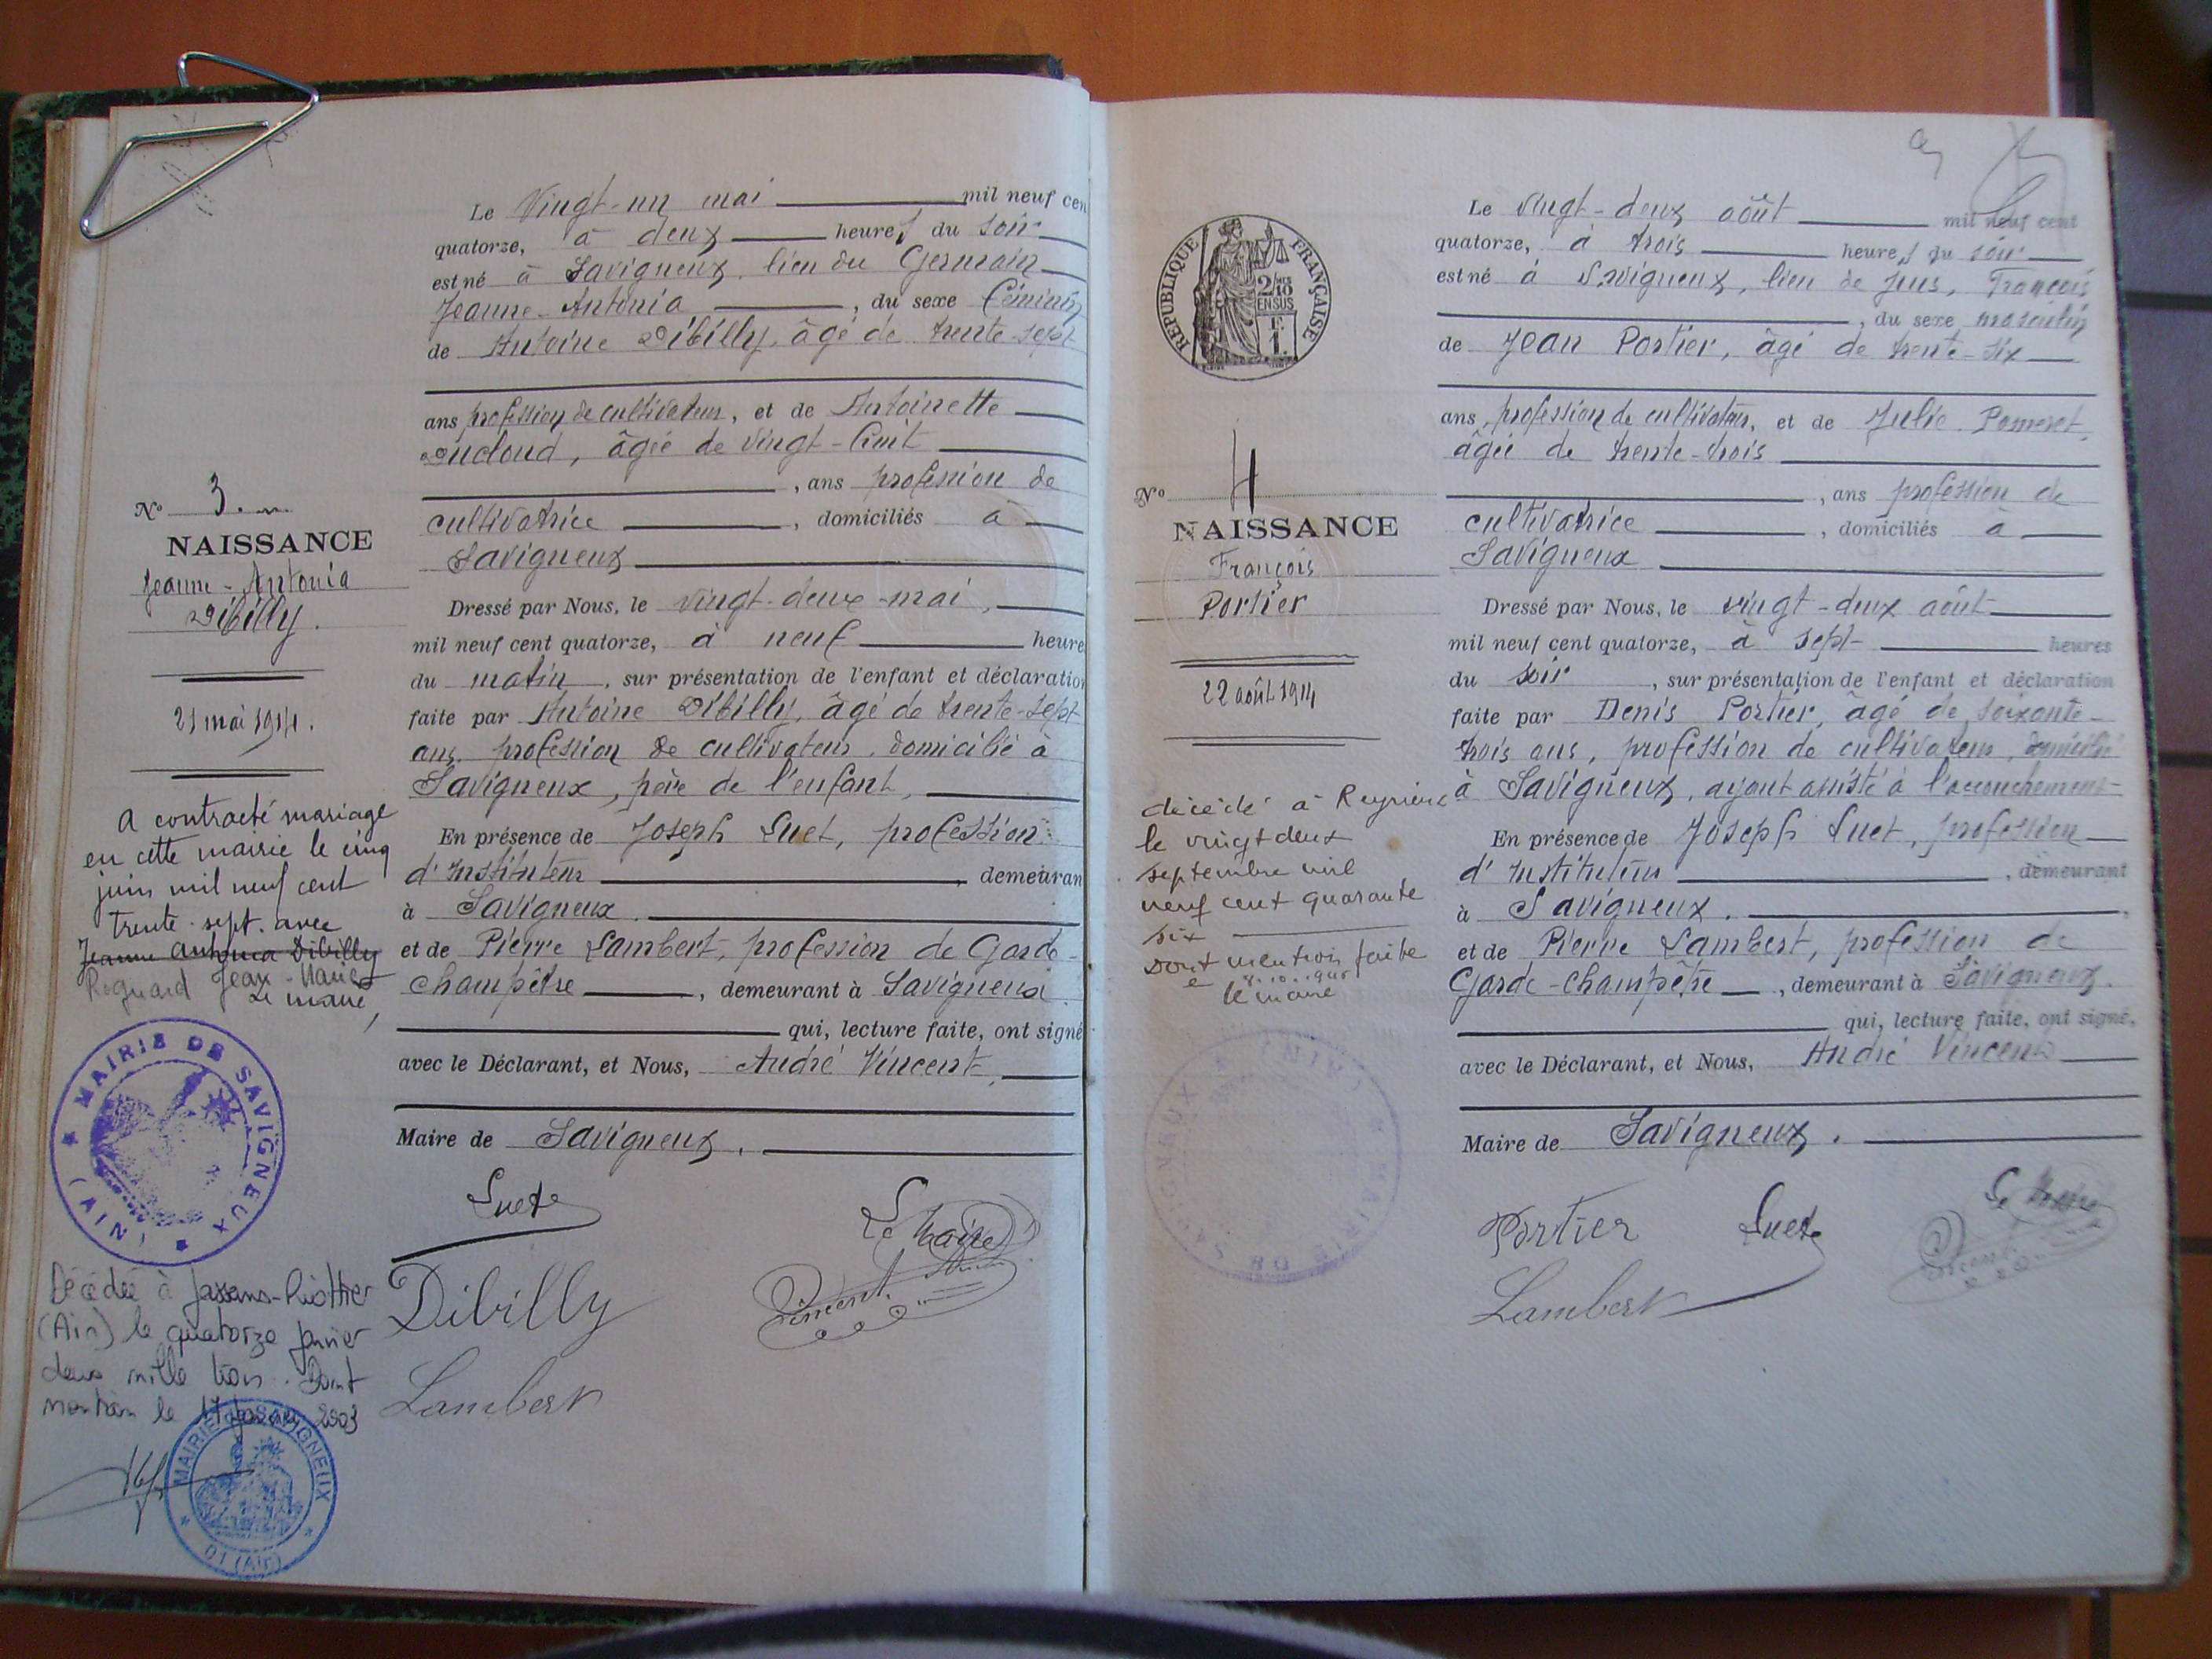 Le Vingt-un mai mil neuf cen
quatorze, à deux heures du soir
est né à Savigneux, lieu du Germain
Jeanne-Antonia, du sexe féminin
de Antoine Dibilly, âgé de trente-sept
ans profession de cultivateur, et de Antoinette
Ducloud, âgée de vingt-huit
, ans profession de
cultivatrice, domiciliés à
Savigneux
Dressé par Nous, le vingt-deux mai,
mil neuf cent quatorze, à neuf heure
du matin, sur présentation de l'enfant et déclaration
faite par Antoine Dibilly, âgé de trente-sept
ans, profession de cultivateur, domicilié à
Savigneux, père de l'enfant,
En présence de Joseph Suet, profession
d'Instituteur, demeuran
à Savigneux.
et de Pierre Lambert, profession de Garde-
champêtre, demeurant à Savigneux.
qui, lecture faite, ont signé
avec le Déclarant, et Nous, André Vincent,
Maire de Savigneux.
Suet
Le Maire
Dibilly
Vincent
Lambert
No 3.
NAISSANCE
Jeanne-Antonia
Dibilly.
21 mai 1914.
A contracté mariage
en cette mairie le cinq
juin mil neuf cent
trente-sept. avec
Jeanne Antonia Dibilly
Jean-Marie
Le maire,
MAIRIE DE SAVIGNEUX
(AIN)
Décédée à Jassans-Riottier
(Ain) le quatorze janvier
deux mille trois. Dont
mention le 17 janvier 2003
MAIRIE DE SAVIGNEUX
01 (Ain)
REPUBLIQUE FRANÇAISE
2/10 ES
EN SUS
1 F.
No 4
NAISSANCE
François
Portier
22 août 1914
décédé à Reyrieux
le vingt deux
septembre mil
neuf cent quarante
six
Dont mention faite
le
le maire
MAIRIE DE SAVIGNEUX
Le Vingt-deux août mil neuf cent
quatorze, à trois heures du soir
est né à Savigneux, lieu de Juis, François
, du sexe masculin
de Jean Portier, âgé de trente-six
ans, profession de cultivateur, et de Julie Pomeret,
âgée de trente-trois
, ans profession de
cultivatrice, domiciliés à
Savigneux
Dressé par Nous, le vingt-deux août
mil neuf cent quatorze, à sept heures
du soir, sur présentation de l'enfant et déclaration
faite par Denis Portier, âgé de soixante-
trois ans, profession de cultivateur, domicilié
à Savigneux, ayant assisté à l'accouchement
En présence de Joseph Suet, profession
d'Instituteur, demeurant
à Savigneux.
et de Pierre Lambert, profession de
Garde-champêtre, demeurant à Savigneux.
qui, lecture faite, ont signé,
avec le Déclarant, et Nous, André Vincent
Maire de Savigneux.
Portier
Suet
Le Maire
Lambert
Vincent